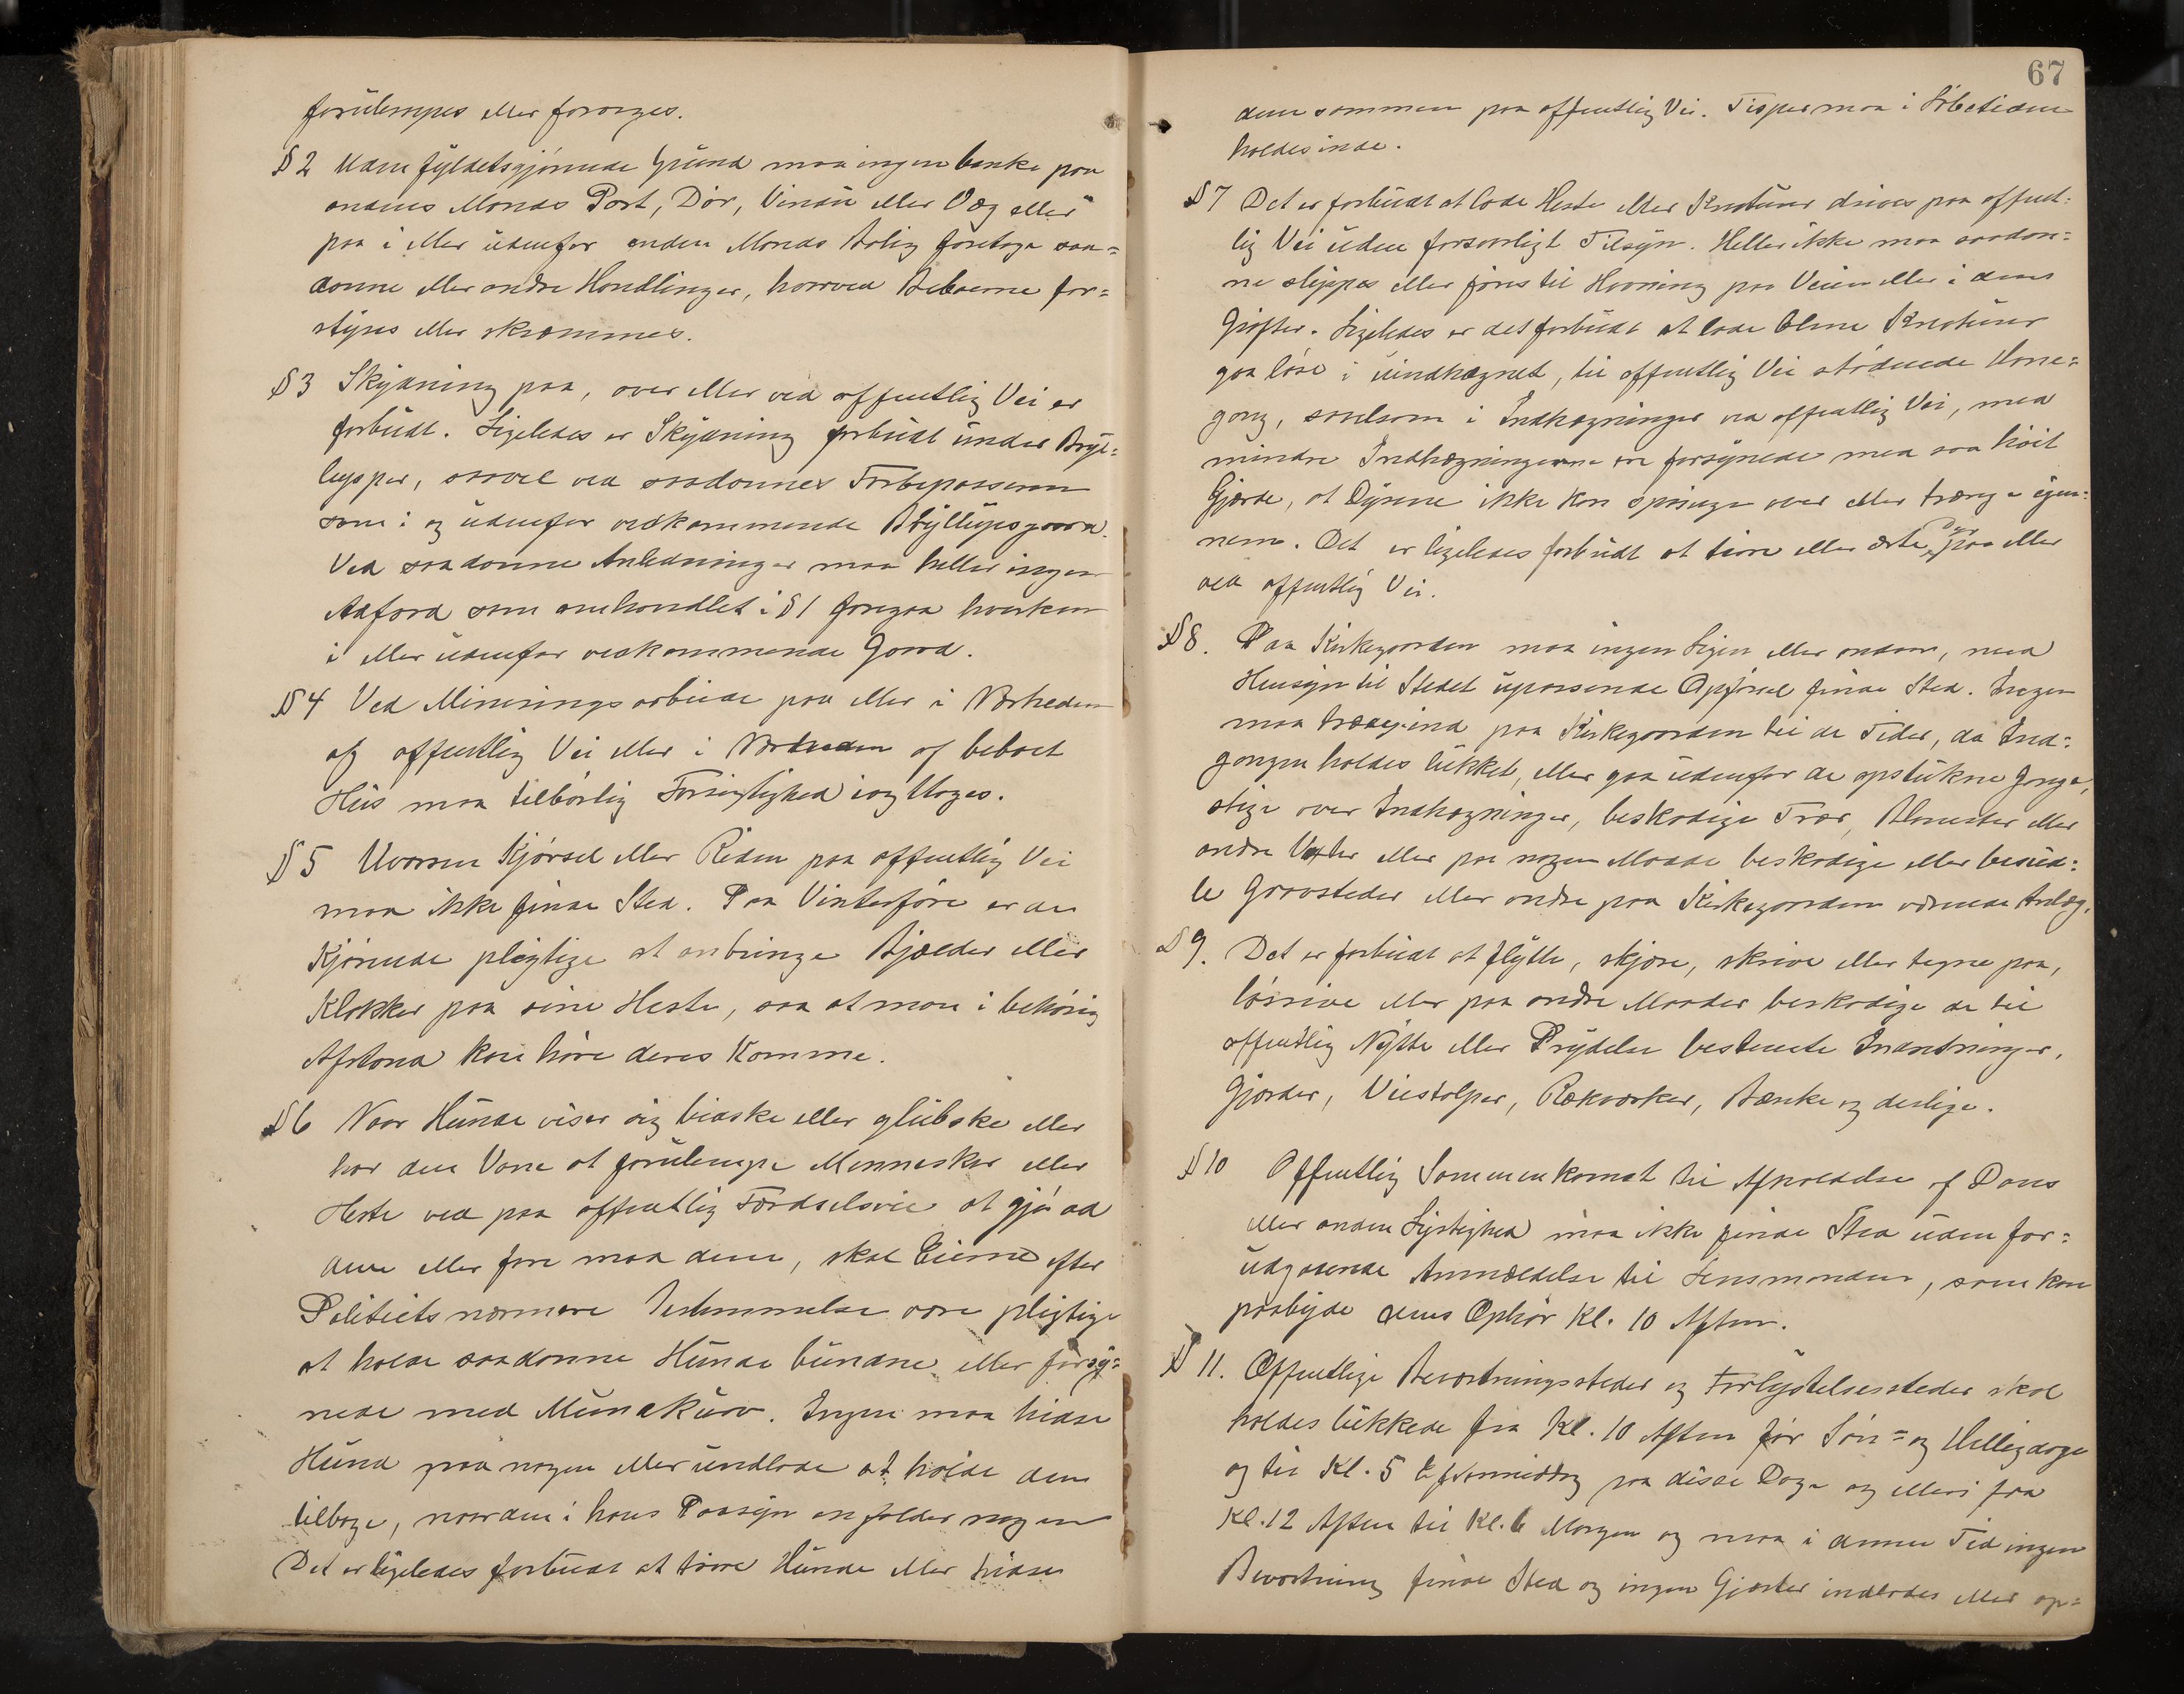 forulempes eller forarges.
§ 2 Uden fyldestgjørende Grund maa ingen banke paa
andens Mands Port, Dør, Vindu eller Væg eller
paa i eller udenfor anden Mands Bolig foretage saa=
danne eller andre Handlinger, hvorved Beboerne for=
styres eller skræmmes.
§ 3 Skydning paa, over eller ved offentlig Vei er
forbudt. Ligeledes er Skydning forbudt under Bryl=
lupper, saavel ved saadannes Forbipasseren
som i og udenfor vedkommende Bryllupsgaard.
Ved saadanne Anledninger maa heller ingen
Adfærd som omhandlet i § 1 foregaa hverken
i eller udenfor vedkommende Gaard.
§ 4 Ved Mineringsarbeide paa eller i Nærheden
af offentlig Vei eller i Nærheden af beboet
Hus maa tilbørlig Forsigtighed iagttages.
§ 5 Uvorren Kjørsel eller Riden paa offentlig Vei
maa ikke finde Sted. Paa Vinterføre er de
Kjørende pligtige at anbringe Bjælder eller
Klokker paa sine Heste, saa at man i behørig
Afstand kan høre deres Komme.
§ 6 Naar Hunde viser sig bidske eller glubske eller
har den Vane at forulempe Mennesker eller
Heste ved paa offentlig Færdselsvei at gjø ad
dem eller fare mod dem, skal Eierne efter
Politiets nærmere Bestemmelse være pligtige
at holde saadanne Hunde bundne eller forsy=
nede med Mundkurv. Ingen maa hidse
Hund paa nogen eller undlade at holde den
tilbage, naar den i hans Paasyn anfalder nogen
Det er ligeledes forbudt at tirre Hunde eller hidse
67
dem sammen paa offentlig Vei. Tisper maa i Løbetiden
holdes inde.
§ 7 Det er forbudt at lade Heste eller Kreaturer drives paa offent=
lig Vei uden forsvarligt Tilsyn. Heller ikke maa saadan=
ne slippes eller føres til Havning paa Veien eller i dens
Grøfter. Ligeledes er det forbudt at lade Olme Kreaturer
gaa løse i uindhægnet, til offentlig Vei stødende Havne=
gang, saavelsom i Indhægninger ved offentlig Vei, med
mindre Indhægningerne er forsynede med saa høit
Gjærde, at Dyrene ikke kan springe over eller trænge igjen=
nem. Det er ligeledes forbudt at tirre eller ærte Dyr paa eller
ved offentlig Vei.
§ 8. Paa Kirkegaarden maa ingen Legen eller anden, med
Hensyn til Stedet upassende Opførsel finde Sted. Ingen
maa trænge ind paa Kirkegaarden til de Tider, da Ind=
gangen holdes lukket, eller gaa udenfor de opstukne Gange,
stige over Indhægninger, beskadige Træer, Blomster eller
andre Vexter eller paa nogen Maade beskadige eller besud=
le Gravsteder eller andre paa Kirkegaarden værende Anlæg.
§ 9. Det er forbudt at flytte, skjære, skrive eller tegne paa,
løsrive eller paa andre Maader beskadige de til
offentlig Nytte eller Prydelse bestemte Indretninger,
Gjærder, Veistolper, Rækværker, Bænke og deslige.
§ 10 Offentlig Sammenkomst til Afholdelse af Dans
eller anden Lystighed maa ikke finde Sted uden for=
udgaaende Anmeldelse til Lensmanden, som kan
paabyde dens Ophør Kl. 10 Aften.
§ 11. Offentlige Beværtningssteder og Forlystelsessteder skal
holdes lukkede fra Kl. 10 Aften før Søn= og Helligdage
og til Kl. 5 Eftermiddag paa disse Dage og ellers fra
Kl. 12 Aften til Kl. 6 Morgen og maa i denne Tid ingen
Beværtning finde Sted og ingen Gjæster indlades eller op=